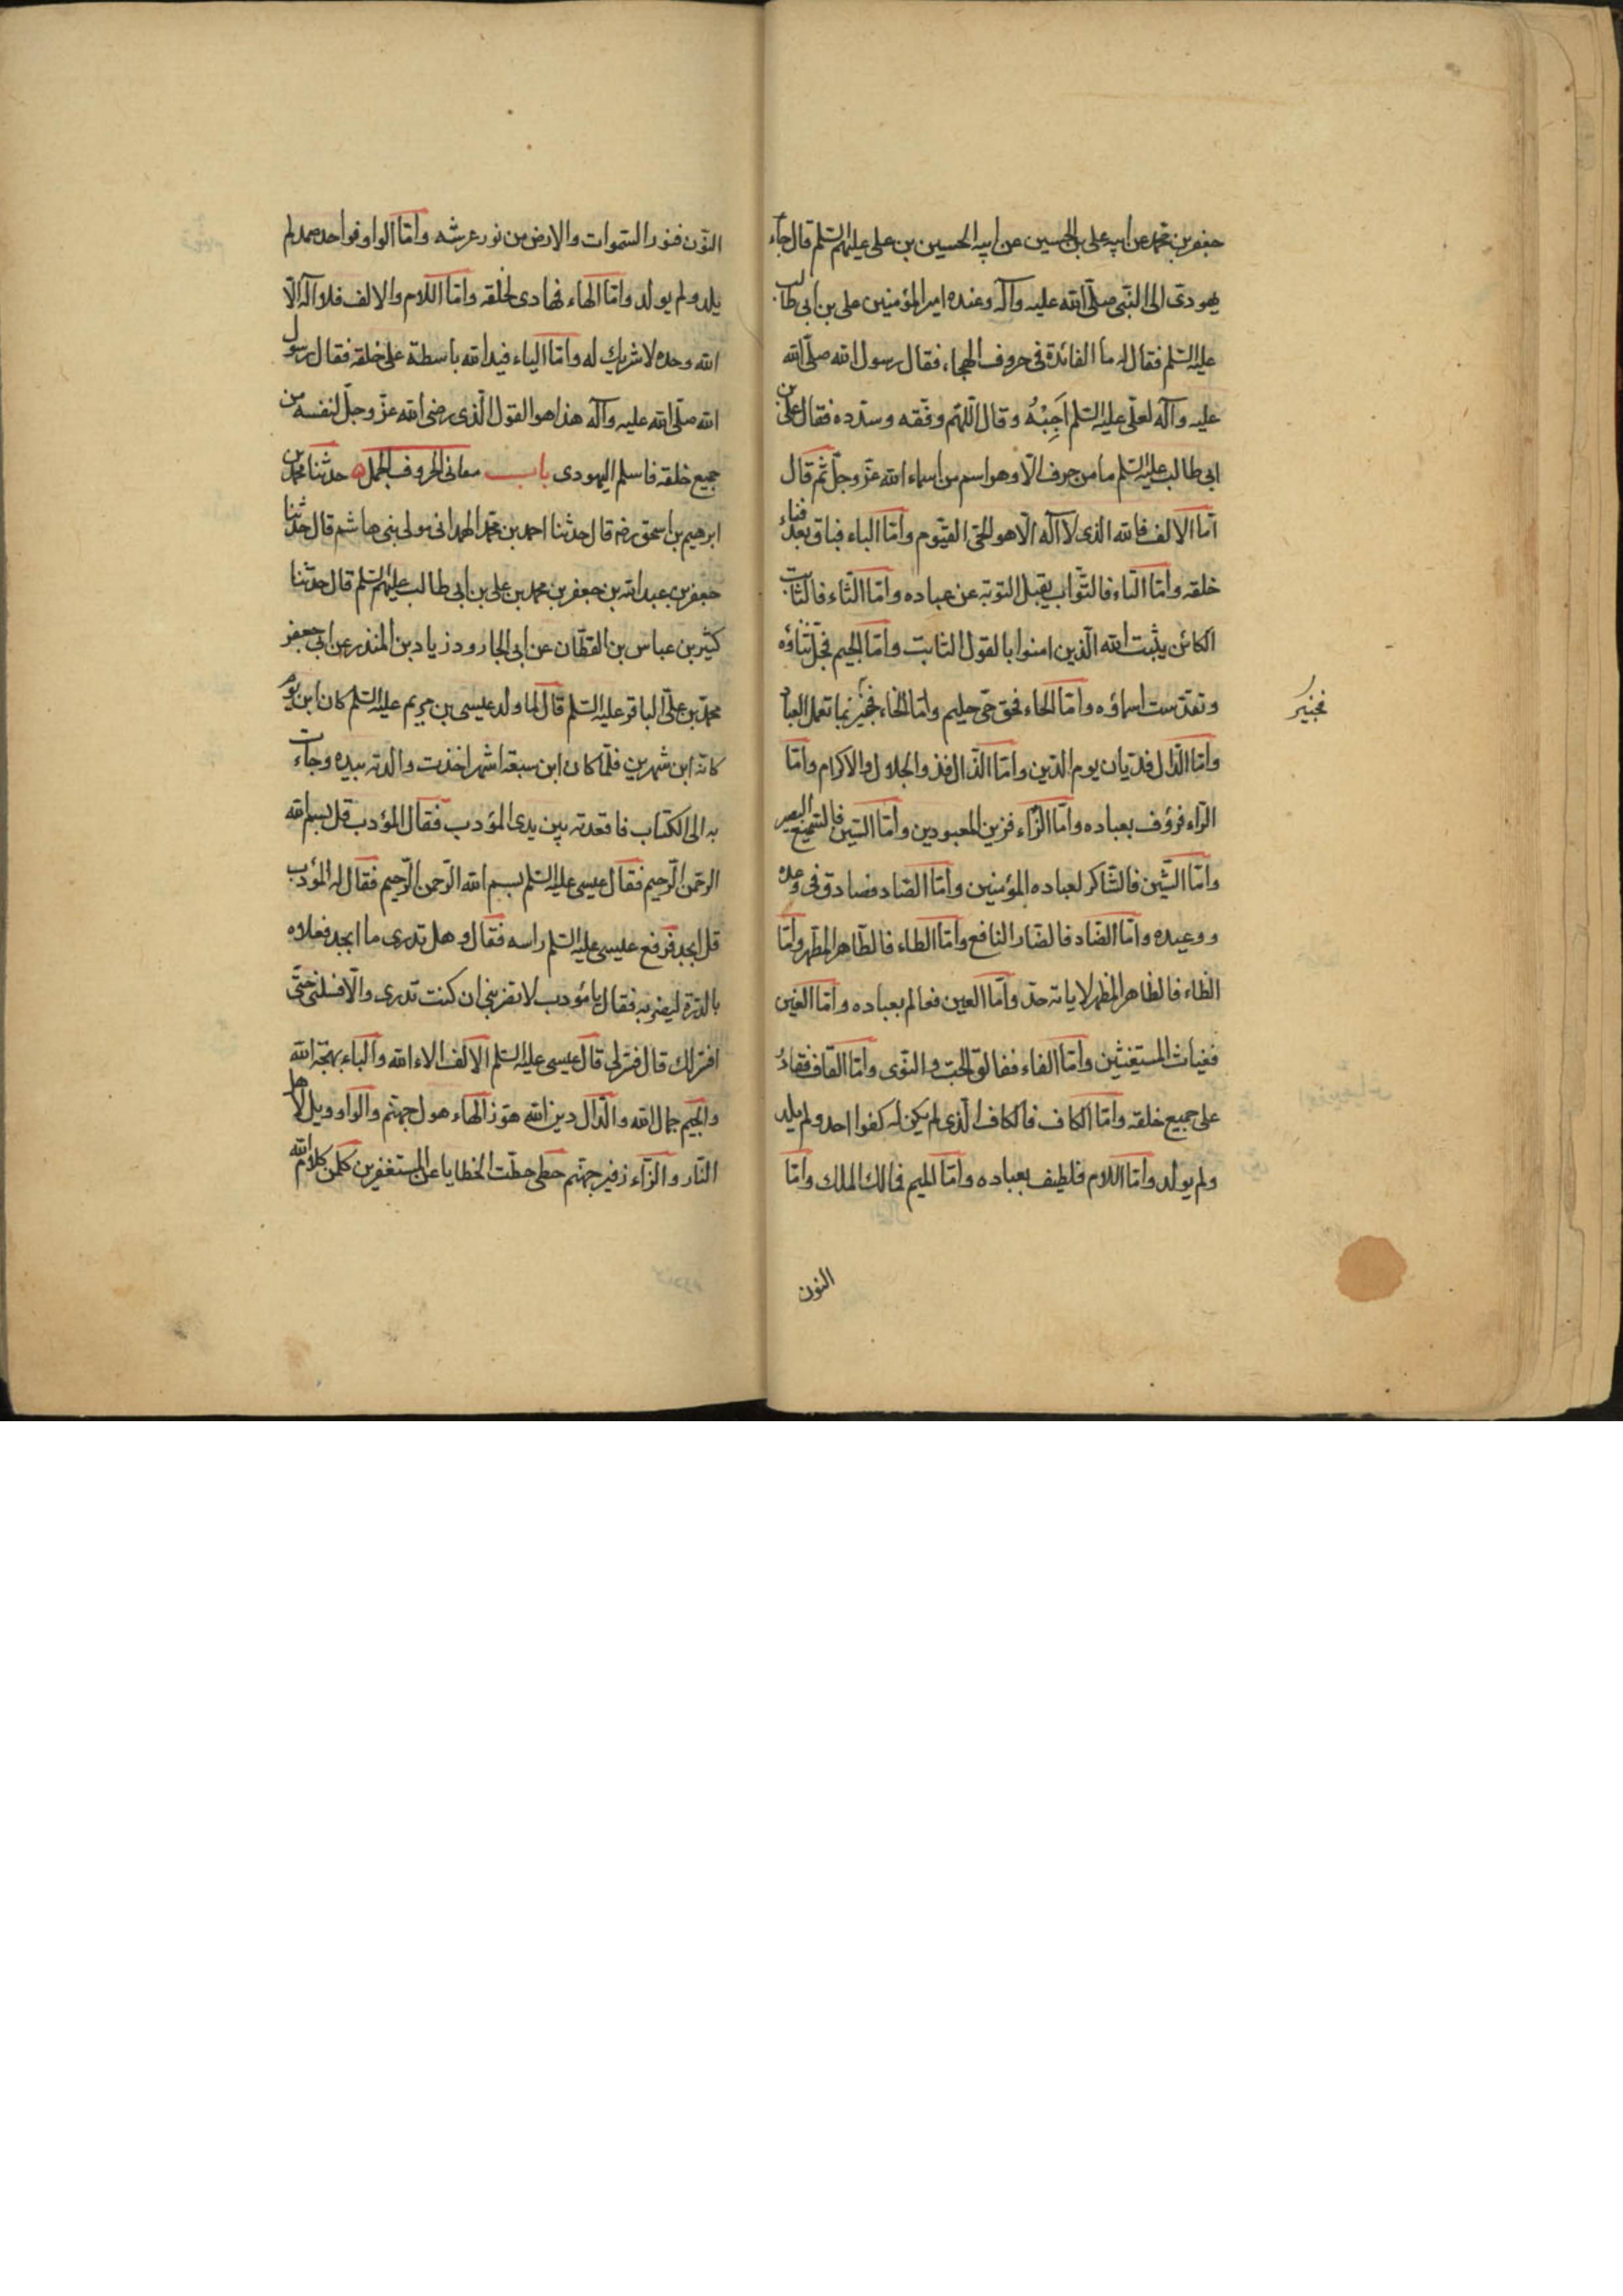 جعفر بن محمد عن ابيه علي بن الحسين عن ابيه الحسين بن علي عليهم السلم قال جاء
يهودى الى النبى صلى الله عليه وآله وعنده امير المؤمنين على بن ابى طالب
عليه السلم فقال له ما الفائدة فى حروف الهجاء فقال رسول الله صلى الله
عليه وآله لعلى عليه السلم اَجِبْهُ وقال اللهم وفقه وسدده فقال على بن
ابى طالب عليه السلم ما من حرف الا وهو اسم من اسماء الله عز وجل ثم قال
اما الالف فالله الذى لا اله الا هو الحى القيوم واما الباء فباق بعد فناء
خلقه واما التاء فالتواب يقبل التوبة عن عباده واما الثاء فالثابت
الكائن يثبت الله الذين امنوا بالقول الثابت واما الجيم فجل ثناؤه
وتقدست اسماؤه واما الحاء فحق حى حليم واما الخاء فخبير بما تعمل العباد
فخبير
واما الدال فديان يوم الدين واما الذال فذو الجلال والاكرام واما
الراء فرؤف بعباده واما الزاء فزين المعبودين واما السين فالسميع البصير
واما الشين فالشاكر لعباده المؤمنين واما الصاد فصادق فى وعده
ووعيده واما الضاد فالضار النافع واما الطاء فالطاهر المطهر واما
الظاء فالظاهر المظهر لاياته واما العين فعالم بعباده واما الغين
فغياث المستغيثين واما الفاء ففالق الحب والنوى واما القاف فقادر
على جميع خلقه واما الكاف فالكاف الذى لم يكن له كفوا احد ولم يلد
ولم يولد واما اللام فلطيف بعباده واما الميم فمالك الملك واما
النون
النون فنور السموات والارض من نور عرشه واما الواو فواحد صمد لم
يلد ولم يولد واما الهاء فهادى لخلقه واما اللام والالف فلا اله الا
الله وحده لا شريك له واما الياء فيد الله باسطة على خلقه فقال رسول
الله صلى الله عليه وآله هذا هو القول الذى رضى الله عز وجل لنفسه من
جميع خلقه فاسلم اليهودى باب معانى الحروف الجمل حدثنا محمد بن
ابرهيم بن اسحق رضه قال حدثنا احمد بن محمد الهمدانى مولى بنى هاشم قال حدثنا
جعفر بن عبد الله بن جعفر بن محمد بن على بن ابى طالب عليهم السلم قال حدثنا
كثير بن عباس بن القطان عن ابى الجارود زياد بن المنذر عن ابى جعفر
محمد بن على الباقر عليه السلم قال لما ولد عيسى بن مريم عليه السلم كان ابن يوم
كانه ابن شهرين فلما كان ابن سبعة اشهر اخذت والدته بيده وجاءت
به الى الكتاب فاقعدته بين يدى المؤدب فقال المؤدب قل بسم الله
الرحمن الرحيم فقال عيسى عليه السلم بسم الله الرحمن الرحيم فقال له المؤدب
قل ابجد فرفع عيسى عليه السلم راسه فقال وهل تدرى ما ابجد فعلاه
بالدرة ليضربه فقال يا مؤدب لا تضربنى ان كنت تدرى والا فسلنى حتى
افسر لك قال فسر لى قال عيسى عليه السلم الالف الاء الله والباء بهجة الله
والجيم جمال الله والدال دين الله هوز الهاء هول جهنم والواو ويل لاهل
النار والزاء زفير جهنم حطى حطت الخطايا عن المستغفرين كلمن كلام الله